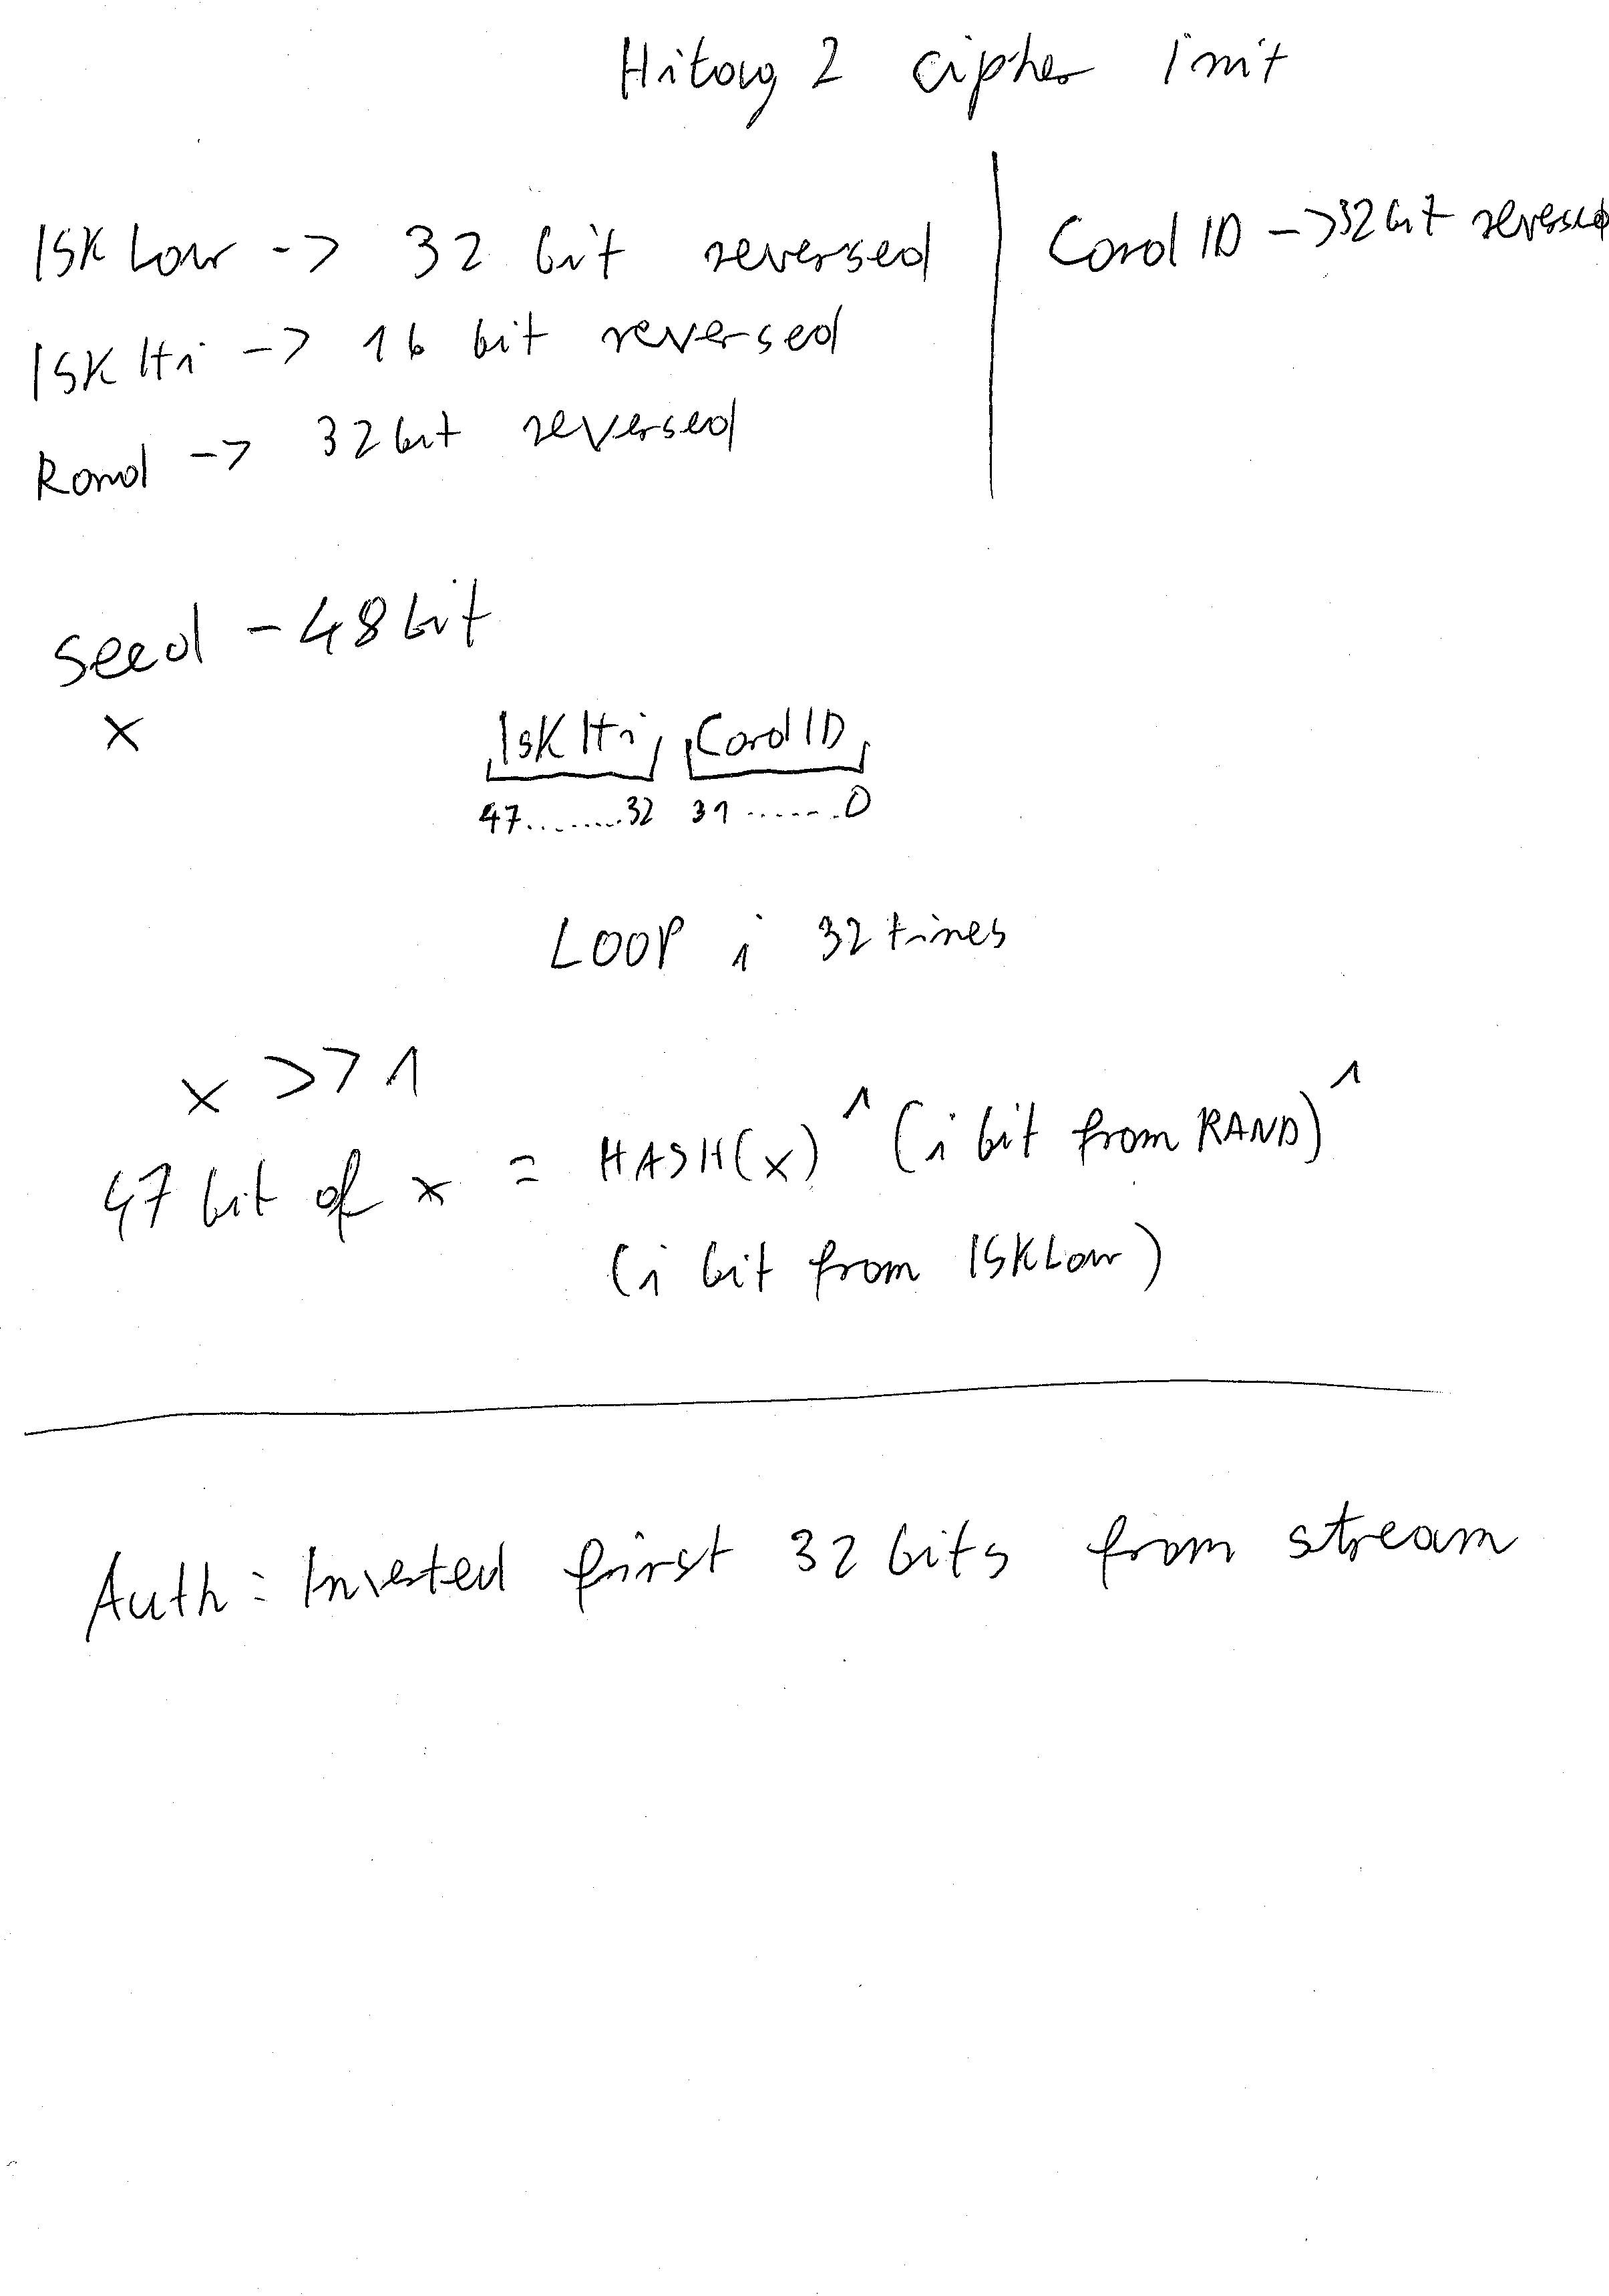 Hitag 2 cipher init
ISK Low -> 32 bit reversed
ISK Hi -> 16 bit reversed
Rand -> 32 bit reversed
Card ID -> 32 bit reversed
seed - 48 bit
x
ISK Hi Card ID
47........32 31.......0
LOOP i 32 times
x >> 1
47 bit of x = HASH(x) ^ (i bit from RAND) ^
(i bit from ISK Low)
Auth: Inverted first 32 bits from stream